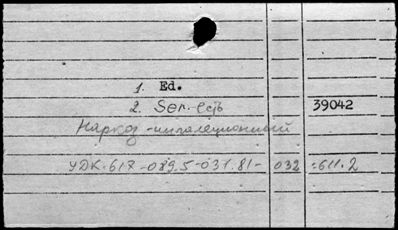 1. Ed.
2. Ser. есть
39042
Наркоз - ингаляционный
УДК. 617-089.5-031.81-032:611.2